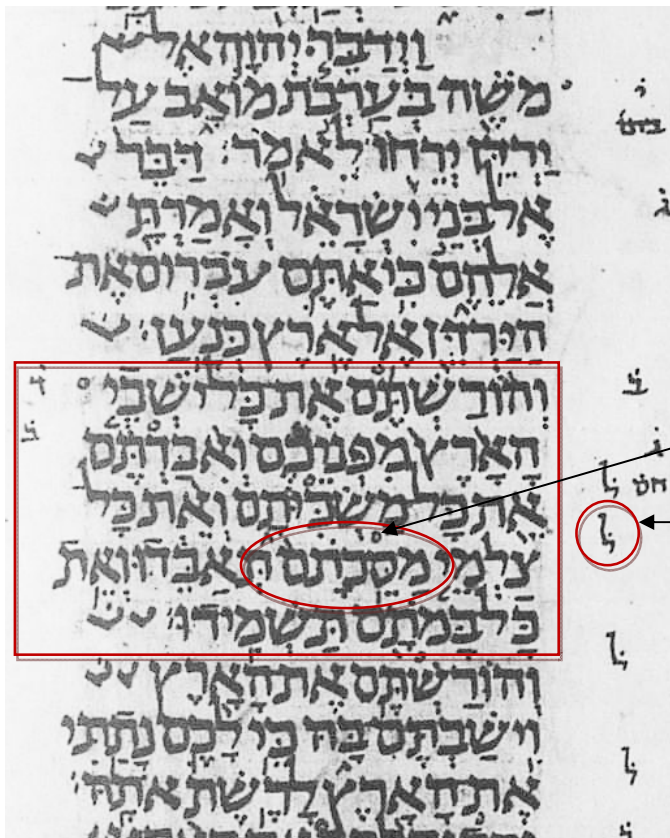 וַיְדַבֵּר יְהוָה אֶל
מֹשֶׁה בְּעַרְבֹת מוֹאָב עַל
יַרְדֵּן יְרֵחוֹ לֵאמֹר׃ דַּבֵּר
אֶל בְּנֵי יִשְׂרָאֵל וְאָמַרְתָּ
אֲלֵהֶם כִּי אַתֶּם עֹבְרִים אֶת
הַיַּרְדֵּן אֶל אֶרֶץ כְּנָעַן׃
וְהוֹרַשְׁתֶּם אֶת כָּל יֹשְׁבֵי
הָאָרֶץ מִפְּנֵיכֶם וְאִבַּדְתֶּם
אֵת כָּל מַשְׂכִּיֹּתָם וְאֵת כָּל
צַלְמֵי מַסֵּכֹתָם תְּאַבֵּדוּ וְאֵת
כָּל בָּמֹתָם תַּשְׁמִידוּ׃
וְהוֹרַשְׁתֶּם אֶת הָאָרֶץ
וִישַׁבְתֶּם בָּהּ כִּי לָכֶם נָתַתִּי
אֶת הָאָרֶץ לָרֶשֶׁת אֹתָהּ׃